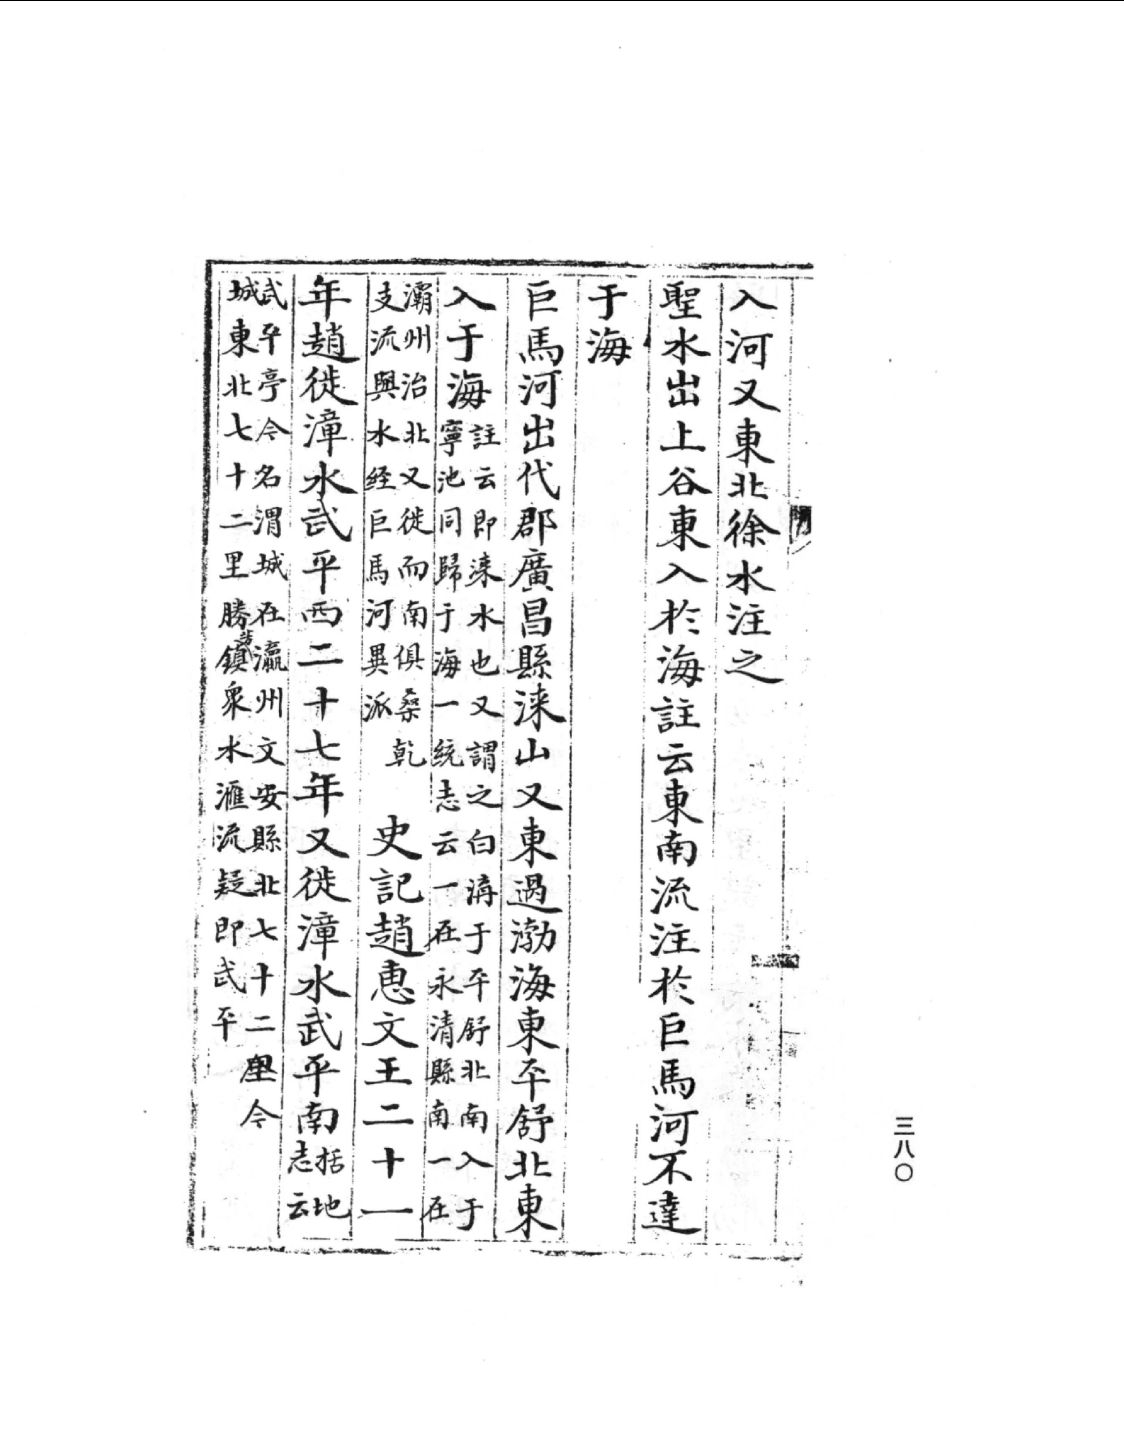 入河又東北徐水注之
聖水出上谷東入於海註云東南流注於巨馬河不達
于海
巨馬河出代郡廣昌縣淶山又東過渤海東平舒北東
入于海
註云即淶水也又謂之白溝于平舒北南入于
寧池同歸于海一統志云一在永清縣南一在
灞州治北又徙而南俱桑乾
支流與水经巨馬河異派
史記趙惠文王二十一
年趙徙漳水武平西二十七年又徙漳水武平南
括地
志云
武平亭今名渭城在瀛州文安縣北七十二里今
城東北七十二里勝芳鎮衆水滙流疑即武平
三八〇